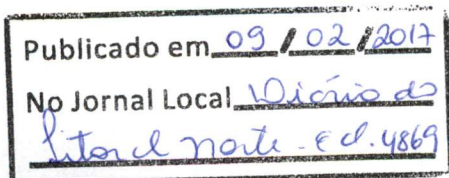 Publicado em 09 / 02 / 2017
No Jornal Local Diário do
Litoral Norte - ed. 4869